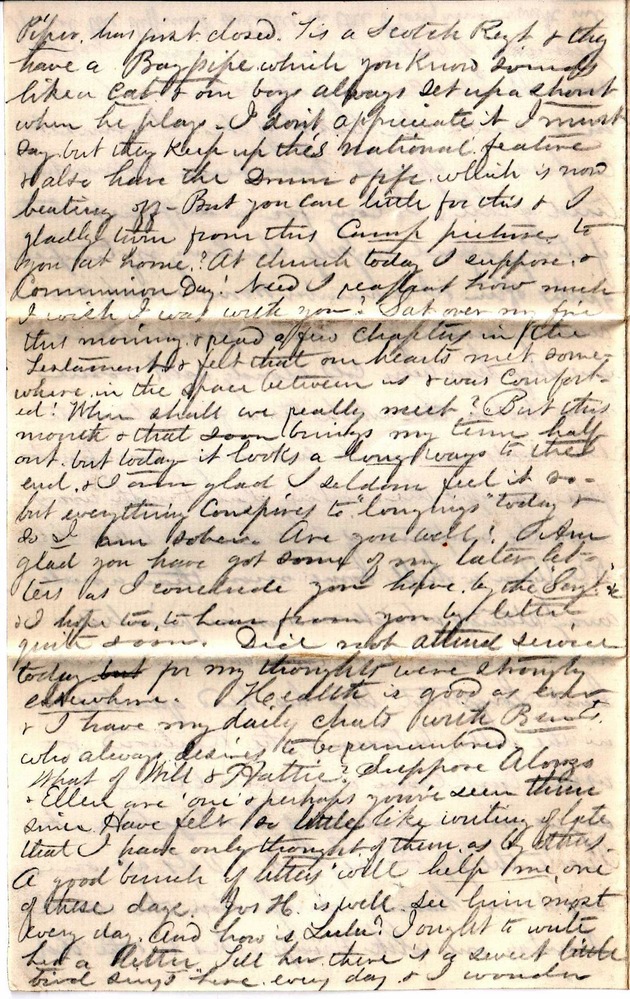 Piper, has just closed. 'Tis a Scotch Regt & they
have a Bagpipe which you know sounds
like a cat & our boys always set up a shout
when he plays. I don't appreciate it I must
say, but they keep up this national feature
& also have the Drum & fife which is now
beating off - But you care little for this & I
gladly turn from this Camp picture to
you at home? At church today I suppose. &
Communion Day! Need I repeat how much
I wish I was with you? Sat over my fire
this morning & read a few chapters in the
Testament & felt that our hearts met some-
where in the space between us & was comfort-
ed! When shall we really meet? But this
month & that soon brings my time half
out. but today it looks a long ways to the
end. & I am glad I seldom feel it so-
but everything conspires to "longings" today &
so I am sober. Are you well? Am
glad you have got some of my later let-
ters as I conclude you have, by the
& I hope too, to hear from you by letter
quite soon. Did not attend service
today but for my thoughts were strongly
elsewhere. Health is good as ever
& I have my daily chats with
who always desires to be remembered.
What of Will & Hattie? Suppose Alonzo
& Ellen are 'one' & perhaps you've seen them
since. Have felt so little like writing of late
that I have only thought of them, as
A good 'bunch of letters' will help me, one
of these days. H. is well. See him most
every day. And how is Lulu? I ought to write
her a letter. Tell her there is a sweet little
bird sings here every day & I wonder